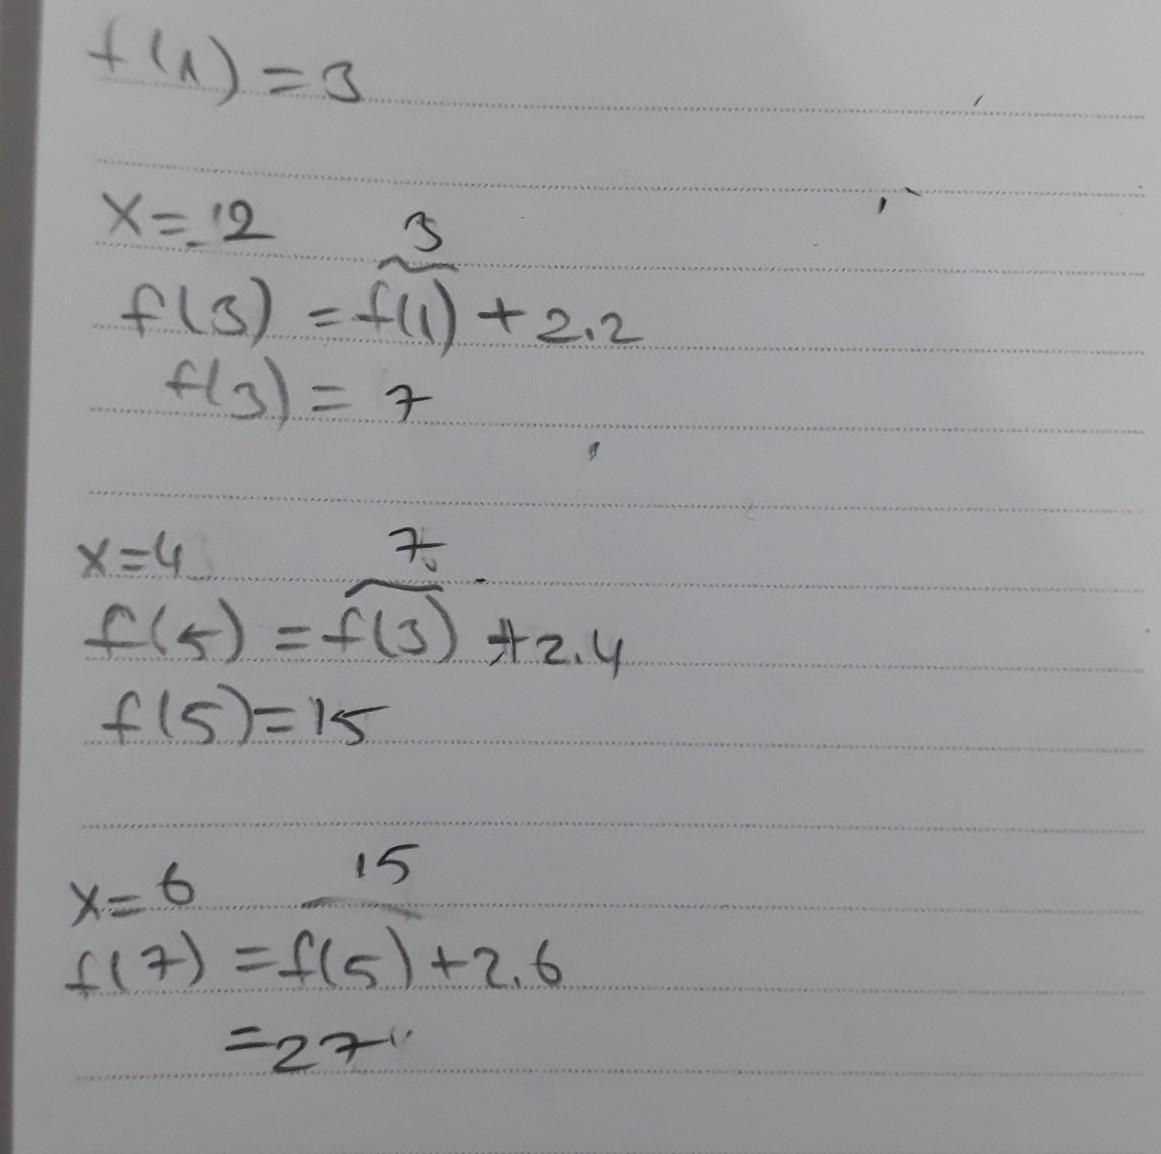 f(1) = 3
x = 12
3
f(3) = f(1) + 2.2
f(3) = 7
x=4
7
f(5) = f(3) + 2.4
f(5)=15
x= 6
15
f(7) = f(5) + 2.6
=27